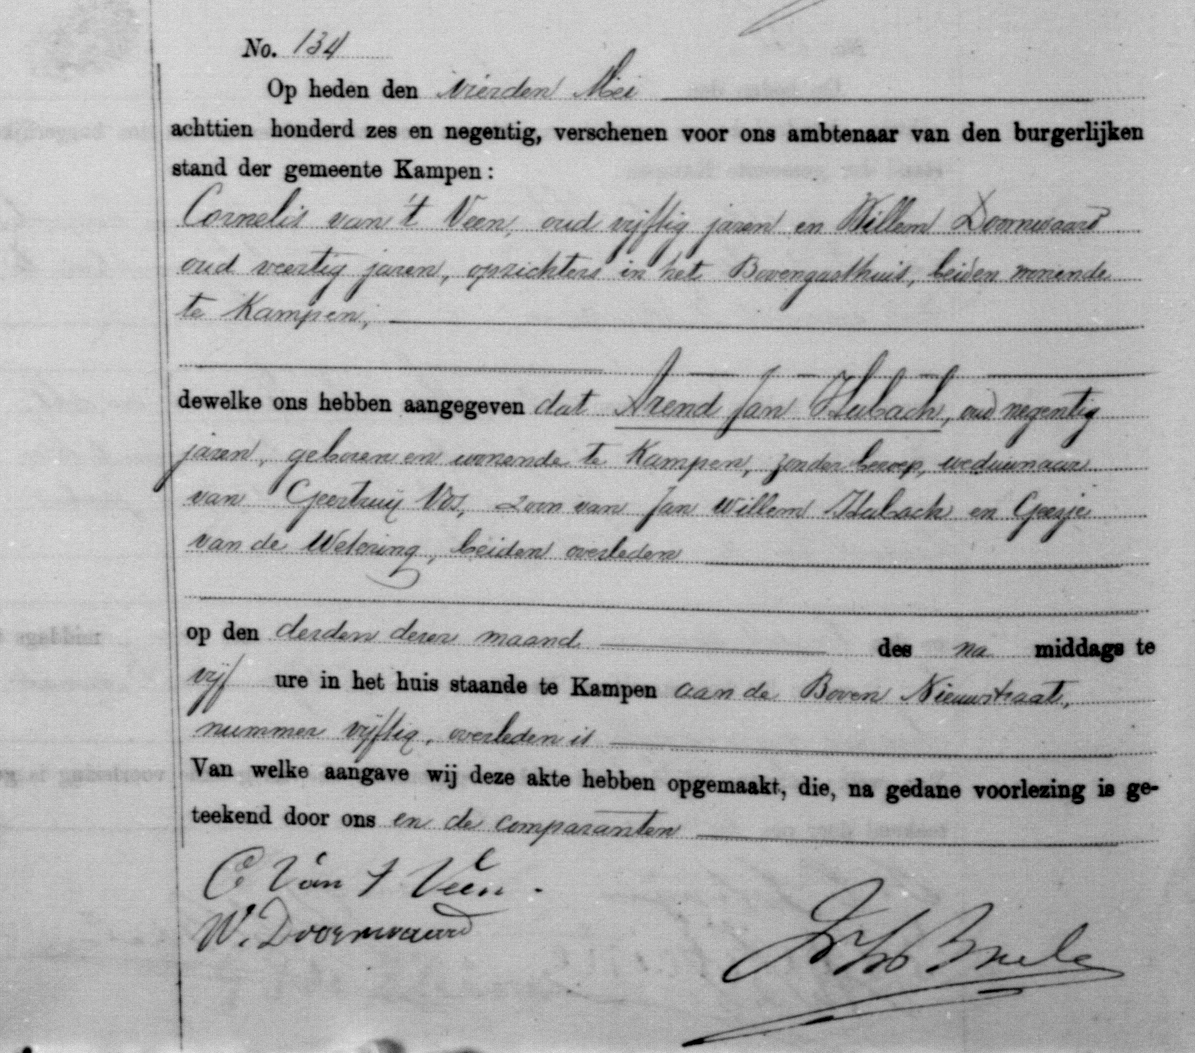 No. 134
Op heden den vierden Mei
achttien honderd zes en negentig, verschenen voor ons ambtenaar van den burgerlijken
stand der gemeente Kampen:
Cornelis van 't Veen, oud vijftig jaren en Willem Doornwaard
oud veertig jaren, opzichters in het Bovengasthuis, beiden wonende
te Kampen,
dewelke ons hebben aangegeven dat Arend Jan Hubach, oud negentig
jaren, geboren en wonende te Kampen, zonder beroep, weduwnaar
van Geertruij Vos, zoon van Jan Willem Hubach en Geesje
van de Wetering, beiden overleden
op den derden dezer maand des na middags te
vijf ure in het huis staande te Kampen aan de Boven Nieuwstraat,
nummer vijftig, overleden is
Van welke aangave wij deze akte hebben opgemaakt, die, na gedane voorlezing is ge-
teekend door ons en de comparanten
C Van t Veen.
W. Doornwaard